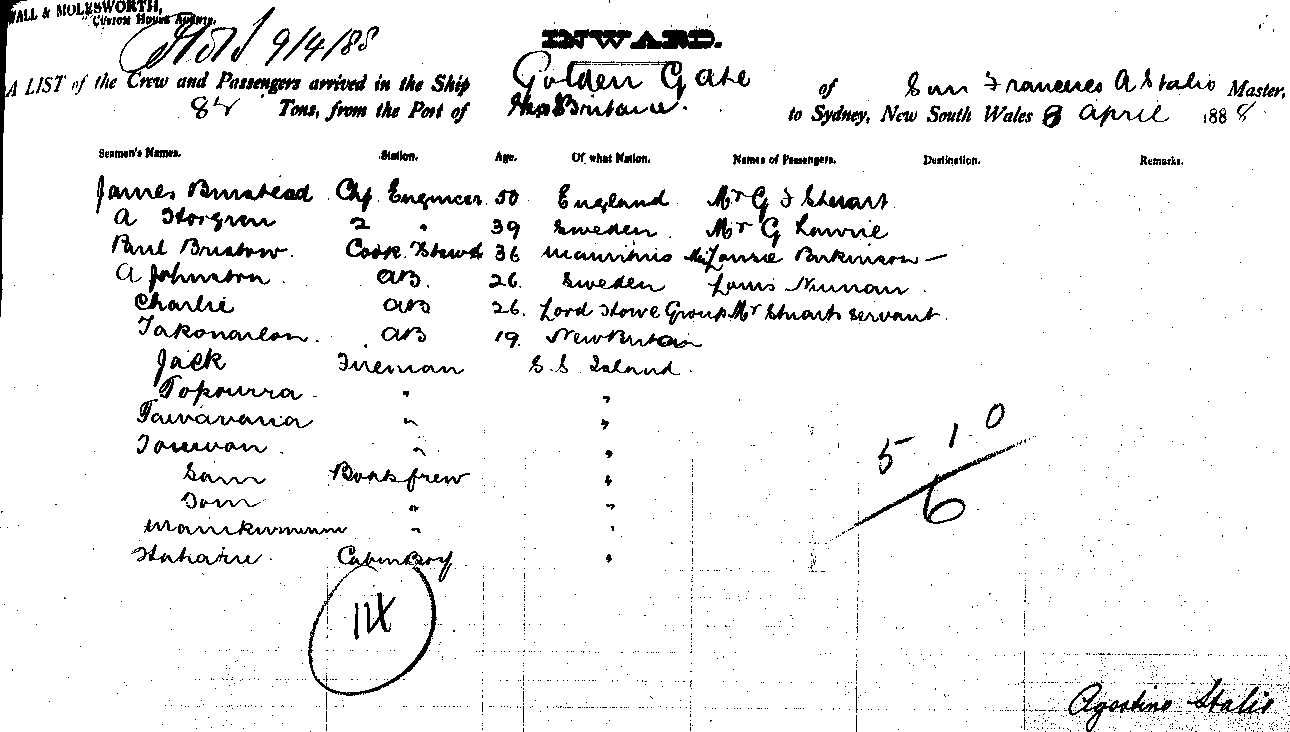 WALL & MOLESWORTH,
Custom House Agents.
9/4/88
INWARD.
A LIST of the Crew and Passengers arrived in the Ship Golden Gate of San Francisco A Stalio Master,
82 Tons, from the Port of New Britain. to Sydney, New South Wales 8 April 1888
Seamen's Names. Station. Age. Of what Nation. Names of Passengers. Destination. Remarks.
James Binstead Chf Engineer 50 England Mr G F Stuart
A 2 " 39 Sweden Mr G Lowrie
Paul Bristow. Cook & Stewd 36 Mauritius Parkinson —
A Johnston AB. 26. Sweden Louis
Charlie AB 26. Lord Howe Group Mr Stuarts servant.
AB 19. New Britain
Jack Fireman S.S. Island.
Topourra " "
Tawavaria " "
" "
Sam Boats Crew "
Tom " "
" "
Cabin Boy "
5 1 0
6
14
Agostino Stalio